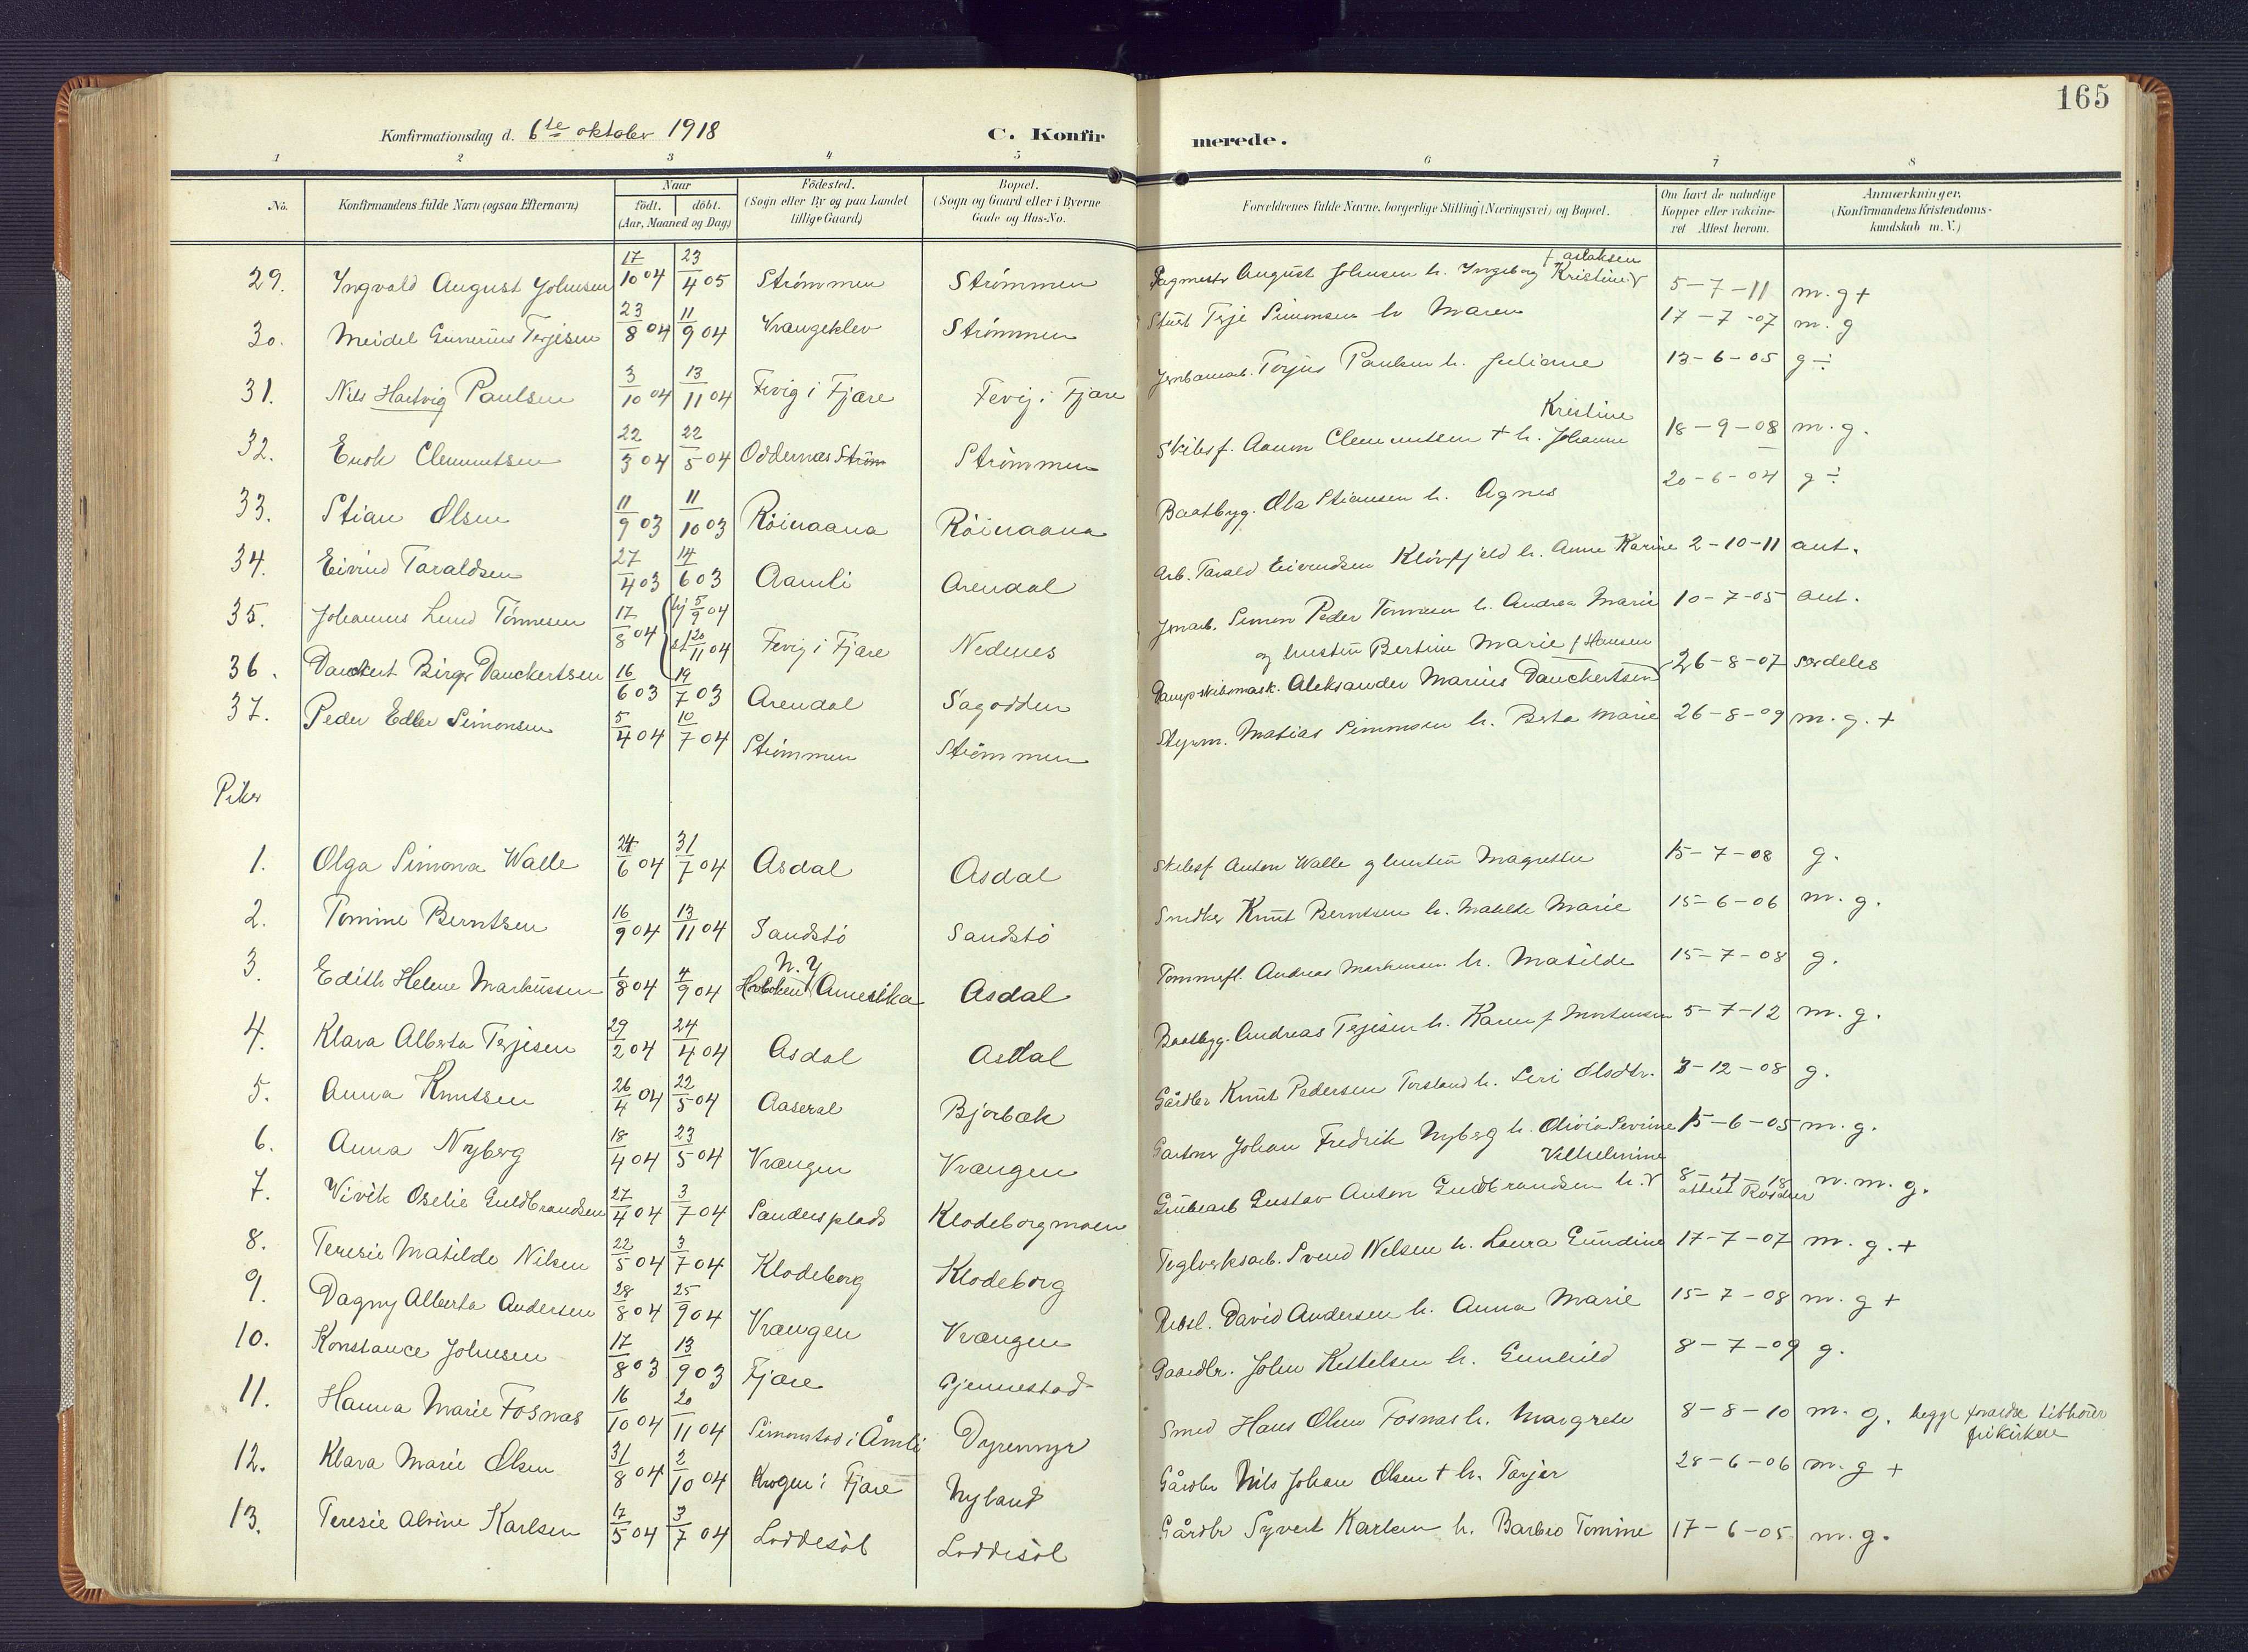 165
Konfirmationsdag d. 6te oktober 1918
C. Konfirmerede.
1 2 3 4 5 6 7 8
No.
Konfirmandens fulde Navn (ogsaa Efternavn)
Naar
födt. döbt.
(Aar, Maaned og Dag)
Födested.
(Sogn eller By og paa Landet
tillige Gaard)
Bopæl.
(Sogn og Gaard eller i Byerne
Gade og Hus-No.
Forældrenes fulde Navne, borgerlige Stilling (Næringsvei) og Bopæl.
Om havt de naturlige
Kopper eller vakcine-
ret Attest herom.
Anmærkninger.
(Konfirmandens Kristendoms-
kundskab m. V.)
f. aslaksen
29. Yngvald August Johnsen 17/10 04 23/4 05 Strömmen Strömmen August Johnsen h. Yngeborg Kristine 5-7-11 m. g +
30. Meidel Gunerius Terjesen 23/8 04 11/9 04 Vrangeklev Strömmen Stuert Terje Simonsen h Maren 17-7-07 m. g
31. Nils Hartvig Paulsen 3/10 04 13/11 04 Fevig i Fjære Fevig i Fjære Torjus Paulsen h. Juliane 13-6-05 g ÷
Kristine
32. Enok Clemmetsen 22/3 04 22/5 04 Oddernæs Strøm Strömmen Skibsf. Aanon Clemmetsen + h. Johanne 18-9-08 m. g.
33. Stian Olsen 11/9 03 11/10 03 Röinaana Röinaana Baatbyg. Ola Stiansen h. Agnes 20-6-04 g ÷
34. Eivind Taraldsen 27/4 03 14/6 03 Aamli Arendal Arb. Tarald Eivindsen Klövfjeld h. Anne Karine 2-10-11 aut.
35. Johannes Lund Tönnesen 17/8 04 hj 5/9 04 st 20/11 04 Fevig i Fjære Nedenes Jernarb. Simon Peder Tönnesen h. Andrea Marie 10-7-05 aut.
og hustru Bertine Marie f Hansen
36. Danckert Birger Danckertsen 16/6 03 19/7 03 Arendal Sagodden Dampskibsmask. Aleksander Marius Danckertsen 26-8-07 særdeles
37. Peder Edler Simonsen 5/4 04 10/7 04 Strömmen Strömmen Styrm. Matias Simonsen h. Berta Marie 26-8-09 m. g. +
Piker
1. Olga Simona Walle 24/6 04 31/7 04 Asdal Asdal Skibsf Anton Walle og hustru Magrethe 15-7-08 g.
2. Tomine Berntsen 16/9 04 13/11 04 Sandstö Sandstö Snedker Knut Berntsen h. Matilde Marie 15-6-06 m. g.
N. Y
3. Edith Helene Markussen 1/8 04 4/9 04 Hoboken Amerika Asdal Tømmerfl. Andreas Markussen h. Matilde 15-7-08 g.
4. Klara Alberta Terjesen 29/2 04 24/4 04 Asdal Asdal Baatbyg. Andreas Terjesen h. Karen f Mortensen 5-7-12 m. g.
5. Anna Knutsen 26/4 04 22/5 04 Aaseral Bjorbæk Gårdbr Knut Pedersen Torsland h. Siri Olsdtr. 3-12-08 g.
6. Anna Nyberg 18/4 04 23/5 04 Vrængen Vrængen Gartner Johan Fredrik Nyberg h. Olivia Severine 15-6-05 m. g.
Vilhelmine
7. Vivik Oselie Guldbrandsen 27/4 04 3/7 04 Sandersplads Klodeborgmoen Grubearb Gustav Anton Guldbrandsen h. 8-4-18 attest m. m. g.
8. Teresie Matilde Nilsen 22/5 04 3/7 04 Klodeborg Klodeborg Teglverksarb. Svend Nilsen h. Laura Gundine 17-7-07 m. g. +
9. Dagny Alberta Andersen 28/8 04 25/9 04 Vrængen Vrængen David Andersen h. Anna Marie 15-7-08 m. g +
10. Konstance Johnsen 17/8 03 13/9 03 Fjære Gjennestad Gaardbr. John Kettelsen h. Gunhild 8-7-09 g.
11. Hanna Marie Fosnæs 16/10 04 20/11 04 Simonstad i Åmli Dyremyr Smed Hans Olsen Fosnæs h. Margrete 8-8-10 m. g. begge forældre tilhører
frikirken
12. Klara Marie Olsen 31/8 04 2/10 04 Krogen i Fjære Nyland Gårdbr Nils Johan Olsen + h. Torjer 28-6-06 m. g +
13. Teresie Alvine Karlsen 17/5 04 3/7 04 Loddesöl Loddesöl Gårdbr Syvert Karlsen h. Barbro Tomine 17-6-05 m. g.